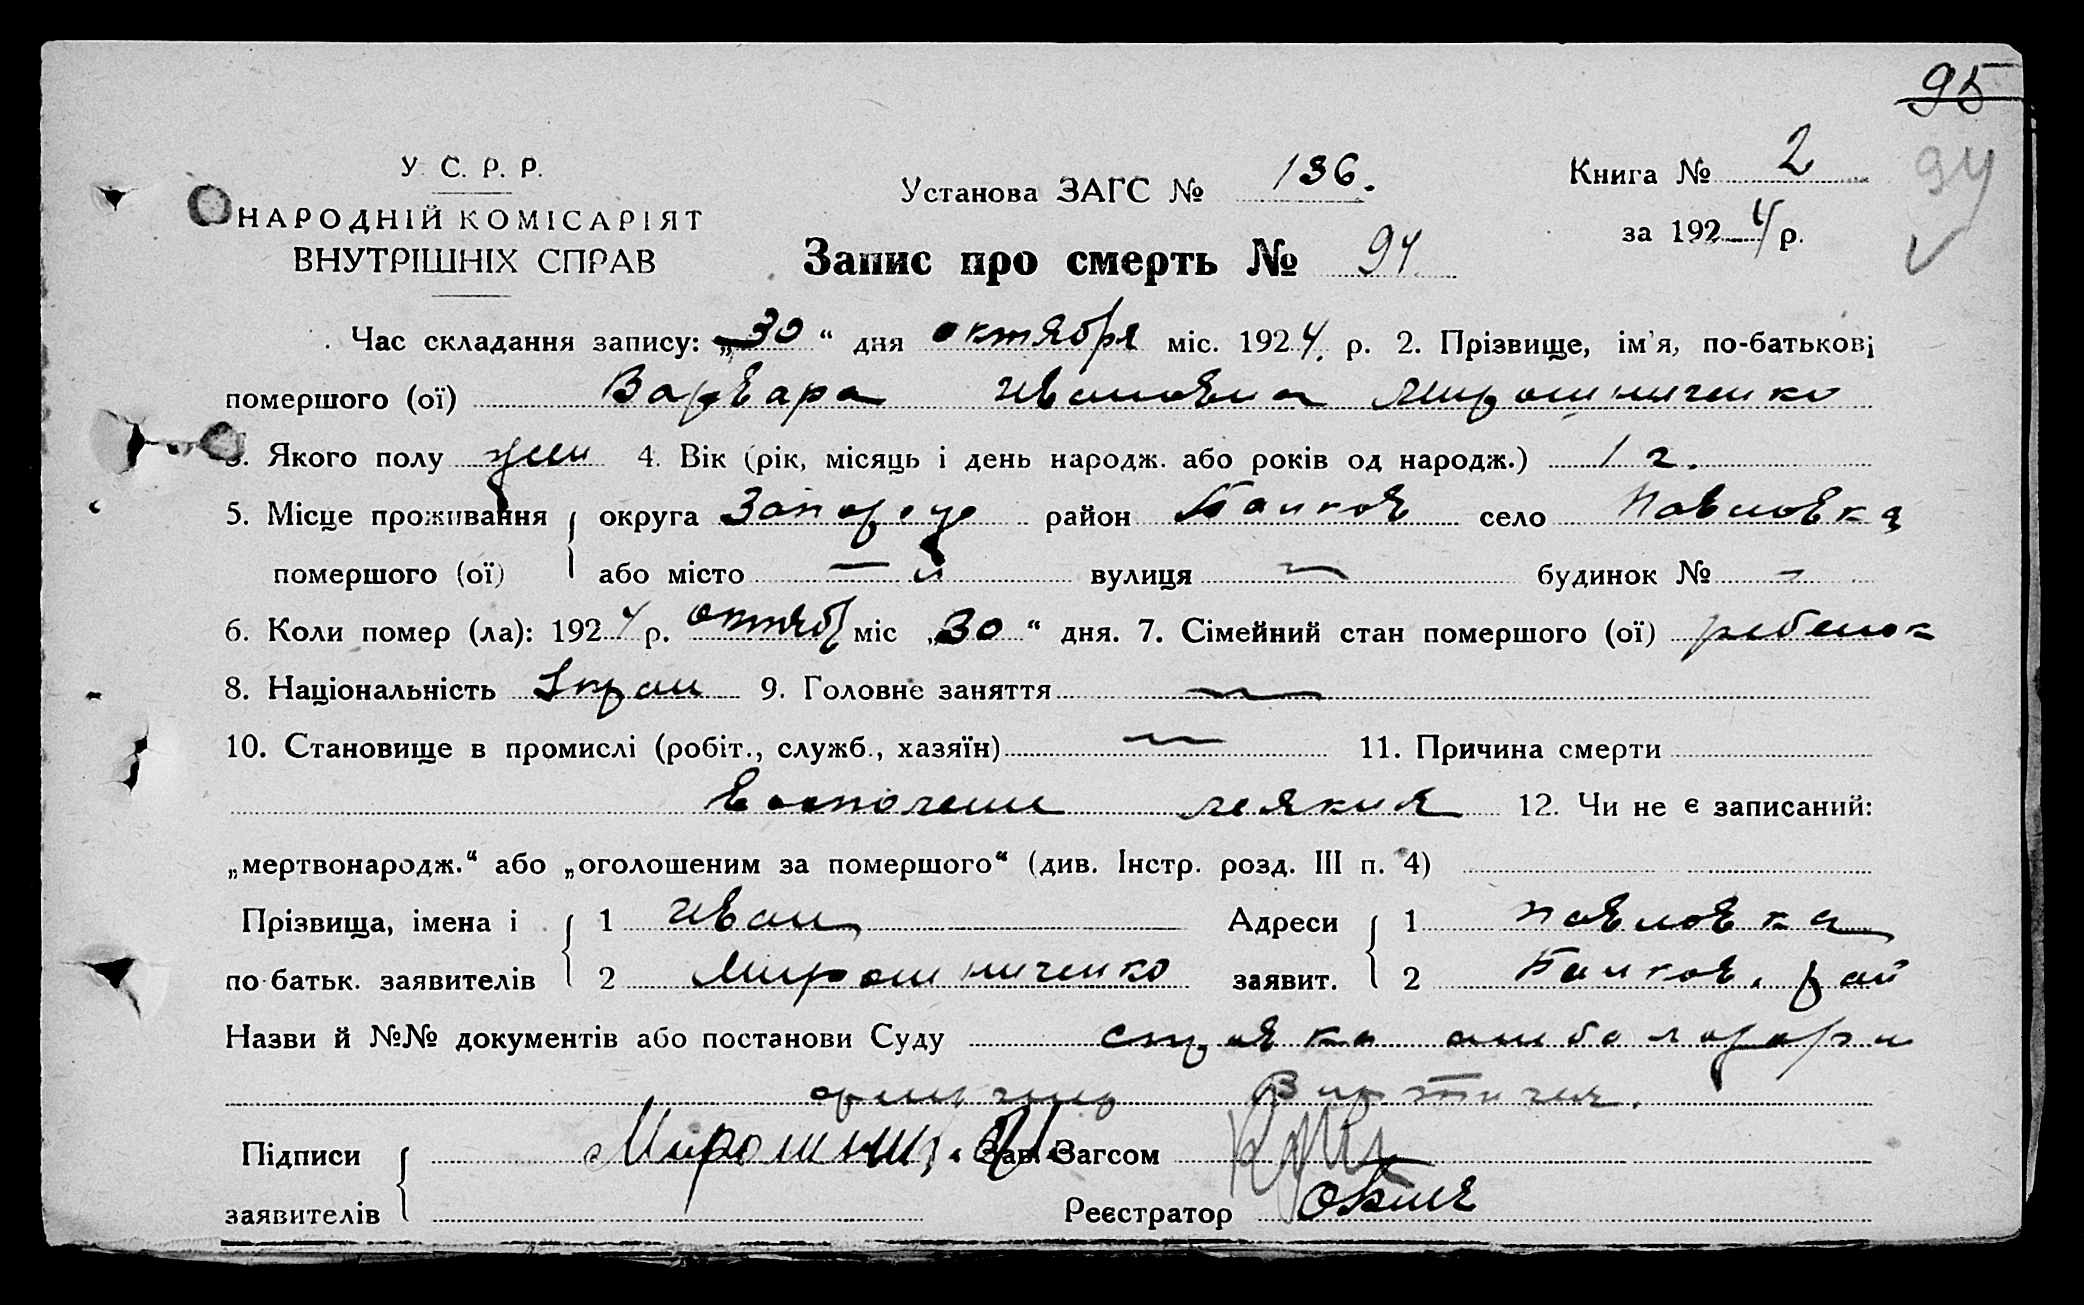 95
94
У. С. Р. Р.
НАРОДНІЙ КОМІСАРІЯТ
ВНУТРІШНІХ СПРАВ
Установа ЗАГС № 136.
Книга № 2
за 1924 р.
Запис про смерть № 94
Час складання запису: „30“ дня октября міс. 1924. р. 2. Прізвище, ім'я, по-батькові
помершого (ої) Варвара Ивановна Мирошниченко
3. Якого полу жен 4. Вік (рік, місяць і день народж. або років од народж.) 1 г.
5. Місце проживання округа район село Павловка
помершого (ої) або місто — вулиця — будинок № —
6. Коли помер (ла): 1924 р. октяб міс „30“ дня. 7. Сімейний стан помершого (ої) ребенок
8. Національність Украин 9. Головне заняття —
10. Становище в промислі (робіт., служб., хазяїн) — 11. Причина смерти
восполении легких 12. Чи не є записаний:
„мертвонародж.“ або „оголошеним за помершого“ (див. Інстр. розд. III п. 4)
Прізвища, імена і 1 Иван Адреси 1 Павловка
по-батьк. заявителів 2 Мирошниченко заявит. 2 рай
Назви й №№ документів або постанови Суду справка амболатори
Підписи Зав. Загсом
заявителів Реєстратор